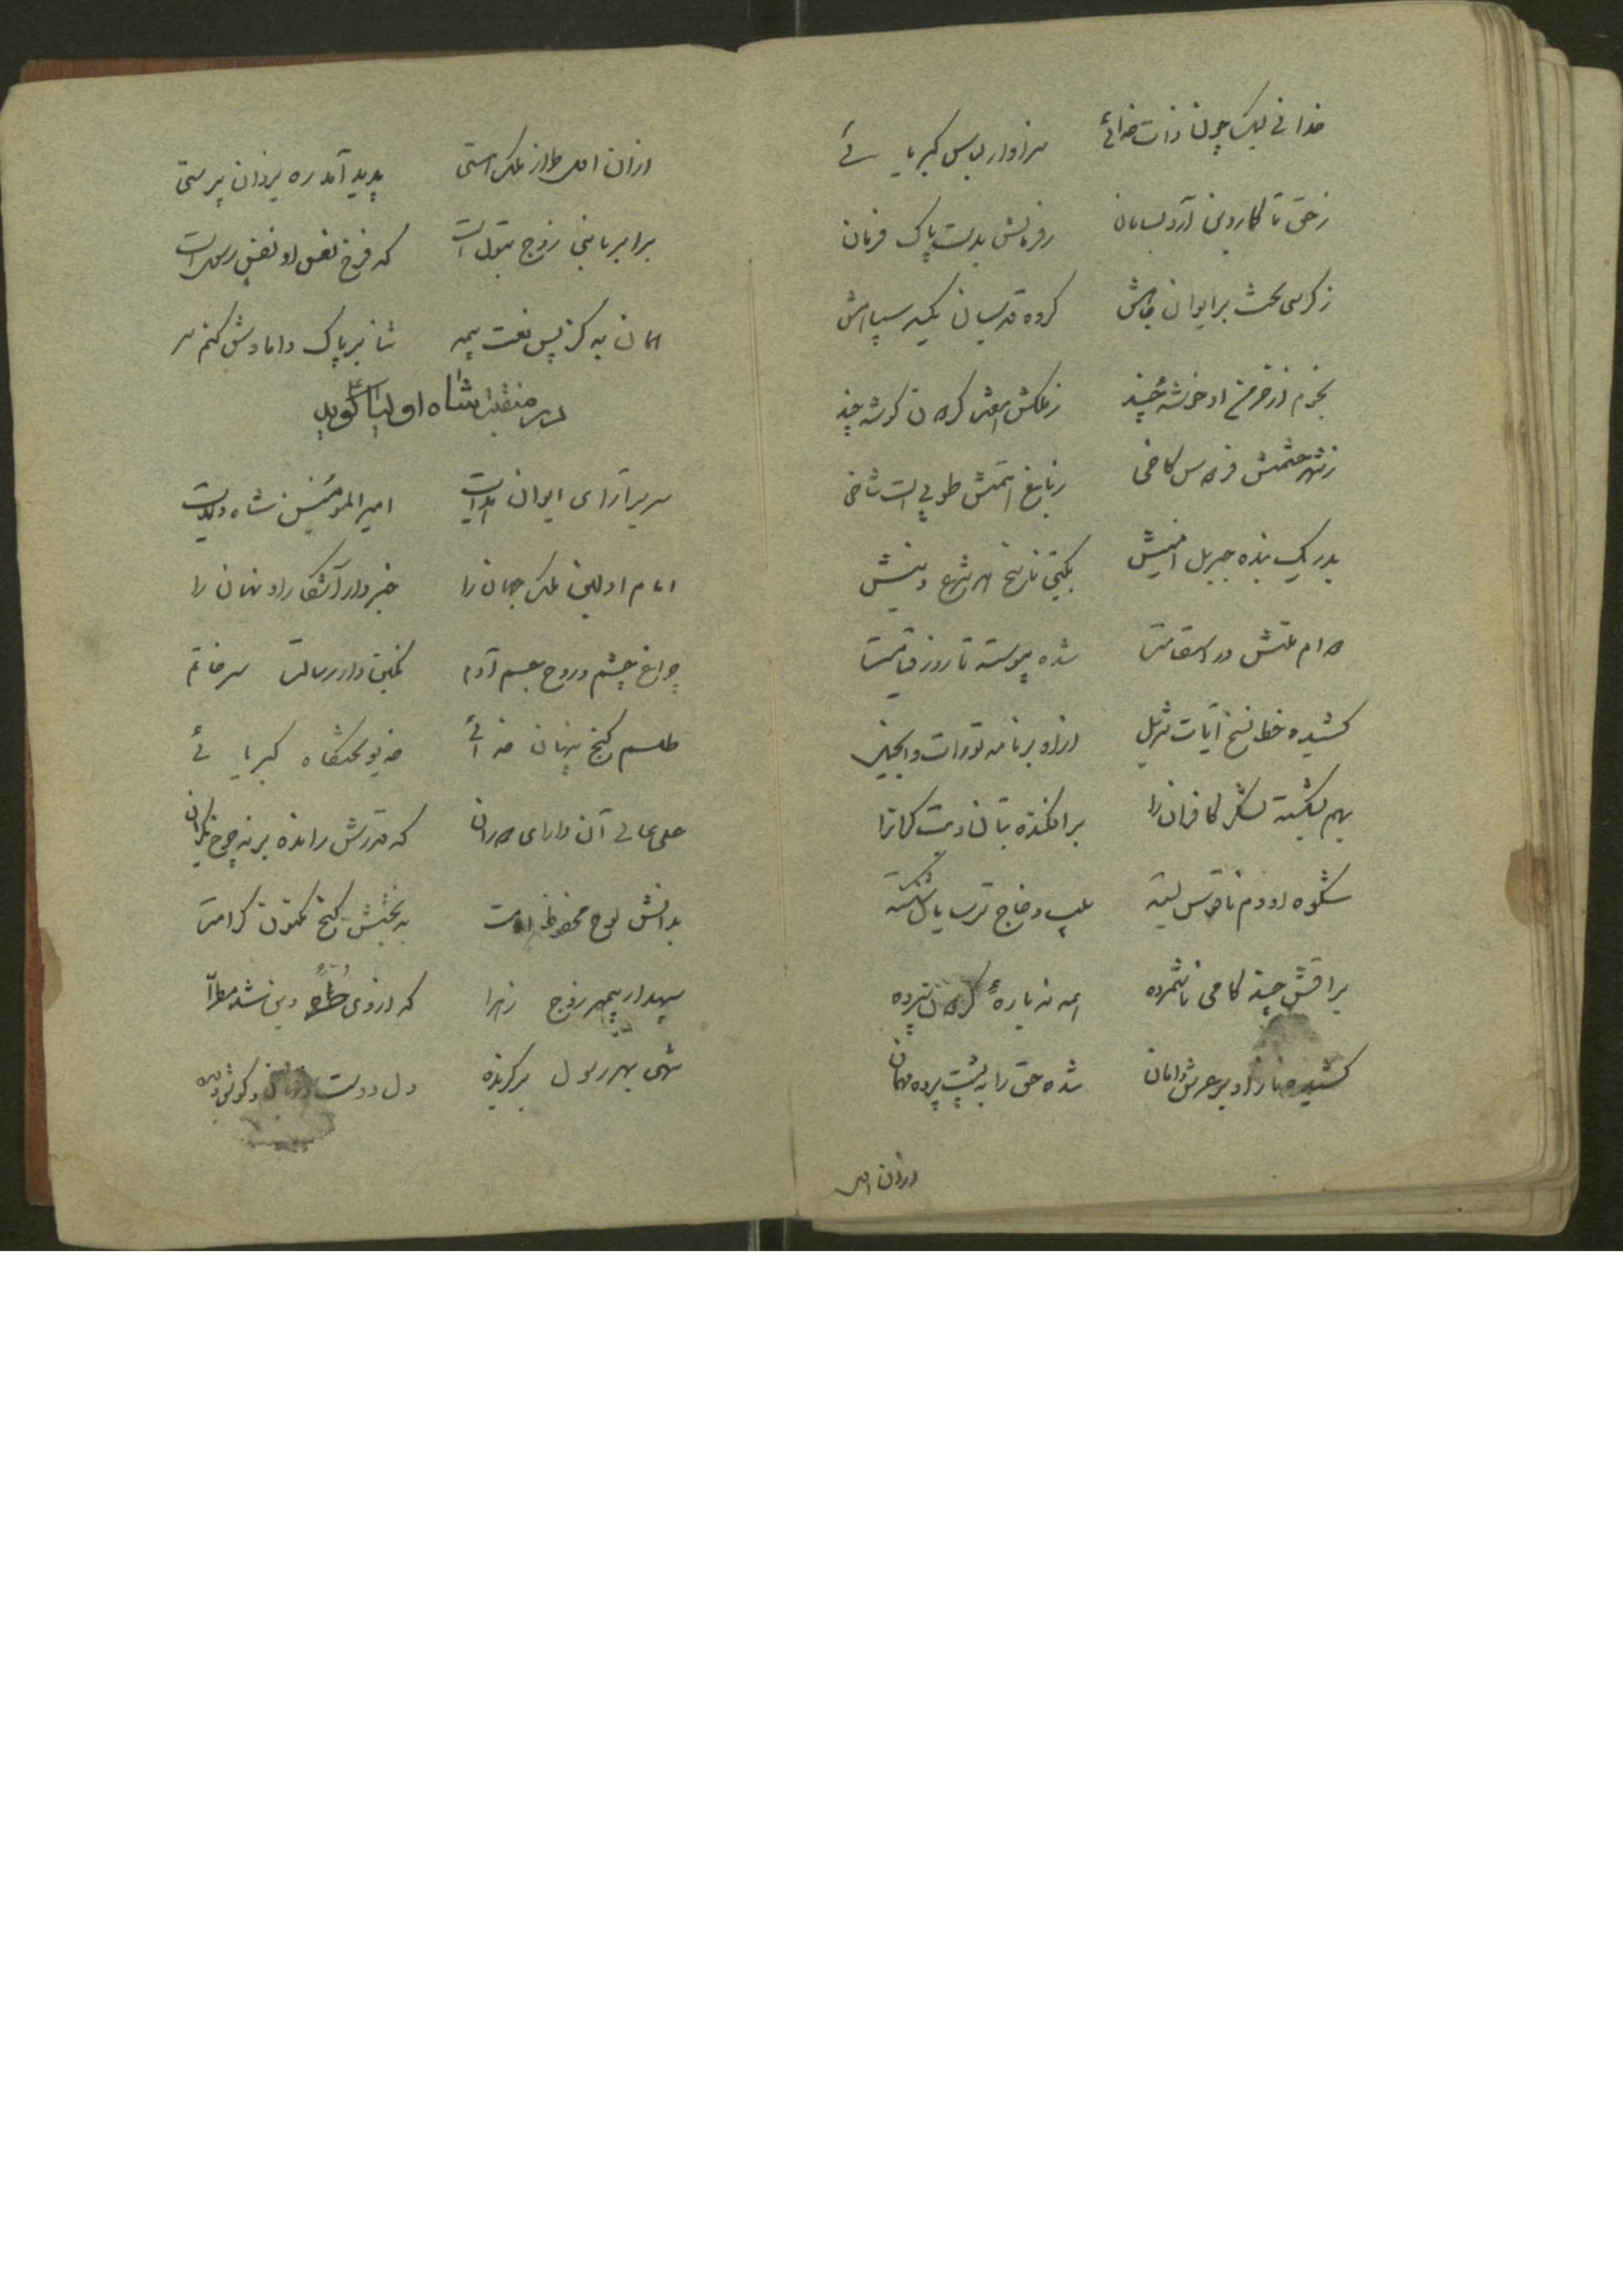 خدا نی لیک چون ذات خدائی سزاوار لباس کبریائی
ز حق تا کار دین آرد بسامان فرمانش بدست پاک فرمان
ز کرسی تخت بر ایوان جاهش گروه قدسیان یکسر سپاهش
نجوم از خرمن او خوشهٔ چند ز ملکش هفت گردون گوشه چند
ز شهر حشمتش فردوس کاخی ز باغ همتش طوبی است شاخی
بدر یک بنده جبریل امینش بگیتی ناسخ هر شرع دینش
دوام ملتش در استقامت شده پیوسته تا روز قیامت
کشیده خط نسخ آیات تنزیل از او بر نامه تورات و انجیل
بهم بشکسته لشکر کافران را برافکنده بتان و بتگران را
شکوه او دم ناقوس بسته چلیپ و خاج ترسایان شکسته
براقش چند کامی ناشمرده همه نه بارهٔ گردون سپرده
کشیده ناز او بر عرش دامان شده حق را به پشت پرده مهمان
ازان اصل
ازان اصل طراز ملک هستی پدید آمد ره یزدان پرستی
برابر با نبی زوج بتول است که فرخ نفس او نفس رسول است
همان به کز پس نعت پیمبر ثنا بر پاک دامادش کنم سر
در منقبت شاه اولیا گوید
سریر آرای ایوان هدایت امیرالمومنین شاه ولایت
امام اولین ملک جهان را خبردار آشکارا و نهان را
چراغ چشم و روح جسم آدم نگین دار رسالت سر خاتم
طلسم گنج پنهان خدائی خدیو تختگاه کبریائی
علی عالی آن دارای دوران که قدرش رانده بر نه چرخ یکران
بدانش لوح محفوظ امامت به بخشش گنج مکنون کرامت
سپهدار پیمبر زوج زهرا که از وی دین شد مطرا
شهی بهر رسول برگزیده دل و دست و زبان و گوش و دیده